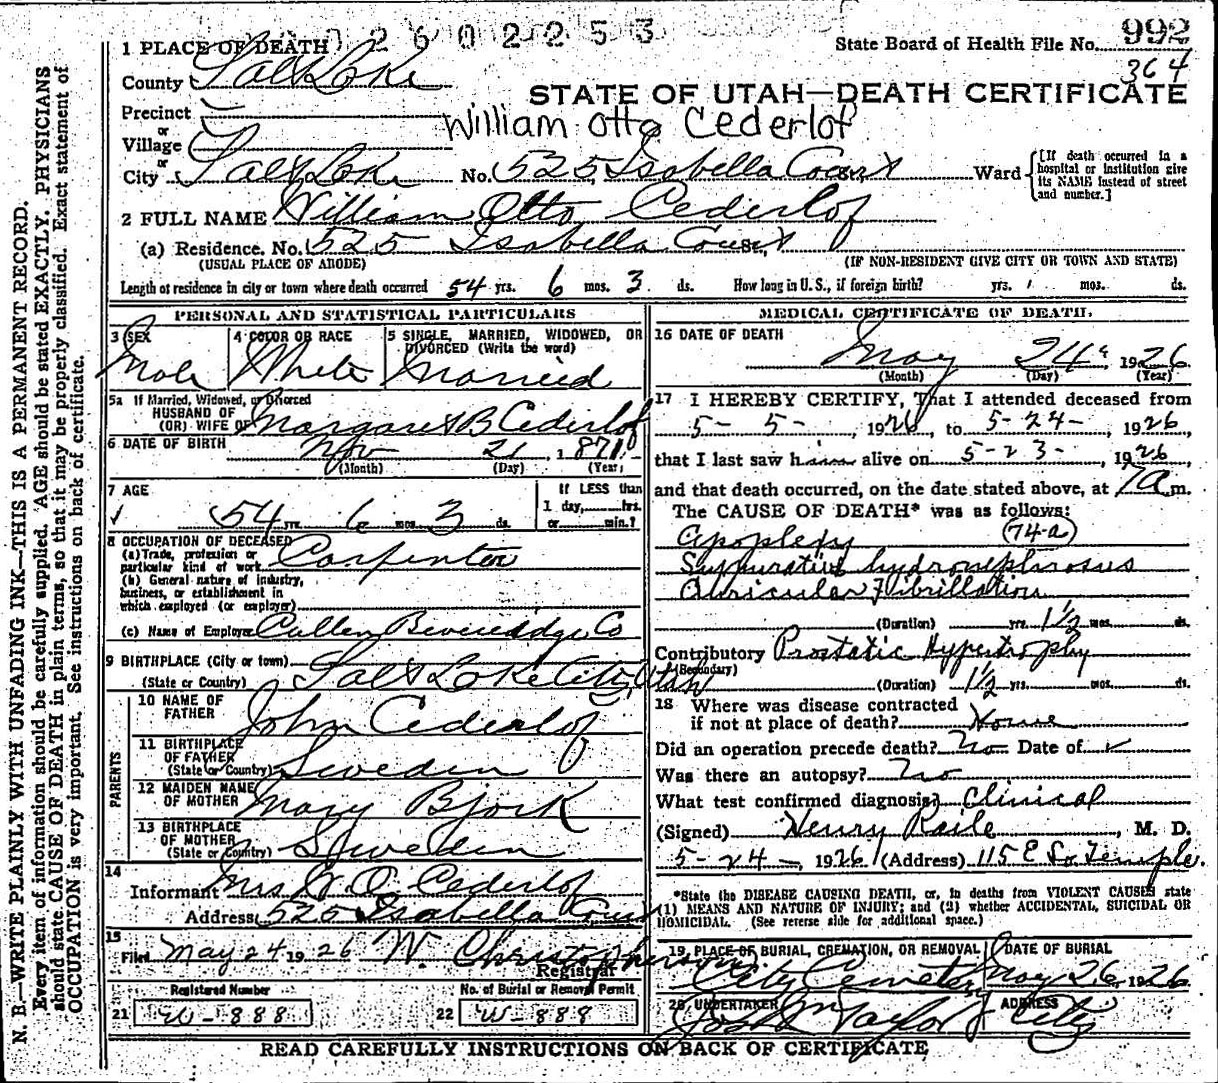 2602253
State Board of Health File No. 992
364
1 PLACE OF DEATH
County Salt Lake
STATE OF UTAH—DEATH CERTIFICATE
Precinct
William Otto Cederlof
or
Village
or
City Salt Lake No. 525 Isabella Court St., Ward
[If death occurred in a hospital or institution give its NAME instead of street and number.]
2 FULL NAME William Otto Cederlof
(a) Residence. No. 525 Isabella Court St.,
(USUAL PLACE OF ABODE) (IF NON-RESIDENT GIVE CITY OR TOWN AND STATE)
Length of residence in city or town where death occurred 54 yrs. 6 mos. 3 ds. How long in U. S., if foreign birth? yrs. mos. ds.
PERSONAL AND STATISTICAL PARTICULARS
3 SEX 4 COLOR OR RACE 5 SINGLE, MARRIED, WIDOWED, OR DIVORCED (Write the word)
Male White Married
5a If Married, Widowed, or Divorced
HUSBAND OF
(OR) WIFE OF Margaret B Cederlof
6 DATE OF BIRTH Nov 21, 1871
(Month) (Day) (Year)
7 AGE If LESS than
1 day, hrs.
54 yrs. 6 mos. 3 ds. or min.?
8 OCCUPATION OF DECEASED
(a) Trade, profession or
particular kind of work Carpenter
(b) General nature of industry,
business, or establishment in
which employed (or employer)
(c) Name of Employer Cullen Bevereddge Co
9 BIRTHPLACE (City or town)
(State or Country) Salt Lake City, Utah
PARENTS
10 NAME OF
FATHER John Cederlof
11 BIRTHPLACE
OF FATHER
(State or Country) Sweden
12 MAIDEN NAME
OF MOTHER Mary Bjork
13 BIRTHPLACE
OF MOTHER
(State or Country) Sweden
14
Informant Mrs W. O. Cederlof
Address 525 Isabella Court
15
Filed May 24 1926 W. Christopherson
Registrar
Registered Number No. of Burial or Removal Permit
21 W-888 22 W-888
MEDICAL CERTIFICATE OF DEATH.
16 DATE OF DEATH
May 24 1926
(Month) (Day) (Year)
17 I HEREBY CERTIFY, That I attended deceased from
5-5-, 1926, to 5-24-, 1926,
that I last saw him alive on 5-23-, 1926,
and that death occurred, on the date stated above, at 7 a m.
The CAUSE OF DEATH* was as follows:
Apoplexy (74-a)
Suppurative hydronephrosus
Auricular Fibrillation
(Duration) yrs. 1½ mos. ds.
Contributory Prostatic Hypertrophy
(Secondary)
(Duration) 1½ yrs. mos. ds.
18 Where was disease contracted
if not at place of death? Home
Did an operation precede death? No Date of
Was there an autopsy? No
What test confirmed diagnosis? Clinical
(Signed) Henry Raile, M. D.
5-24-, 1926 (Address) 115 E So. Temple.
*State the DISEASE CAUSING DEATH, or, in deaths from VIOLENT CAUSES state
(1) MEANS AND NATURE OF INJURY; and (2) whether ACCIDENTAL, SUICIDAL OR
HOMICIDAL. (See reverse side for additional space.)
19 PLACE OF BURIAL, CREMATION, OR REMOVAL DATE OF BURIAL
City Cemetery May 26, 1926
20 UNDERTAKER ADDRESS
Taylor City
READ CAREFULLY INSTRUCTIONS ON BACK OF CERTIFICATE
N. B.—WRITE PLAINLY WITH UNFADING INK—THIS IS A PERMANENT RECORD.
Every item of information should be carefully supplied. AGE should be stated EXACTLY. PHYSICIANS
should state CAUSE OF DEATH in plain terms, so that it may be properly classified. Exact statement of
OCCUPATION is very important. See instructions on back of certificate.